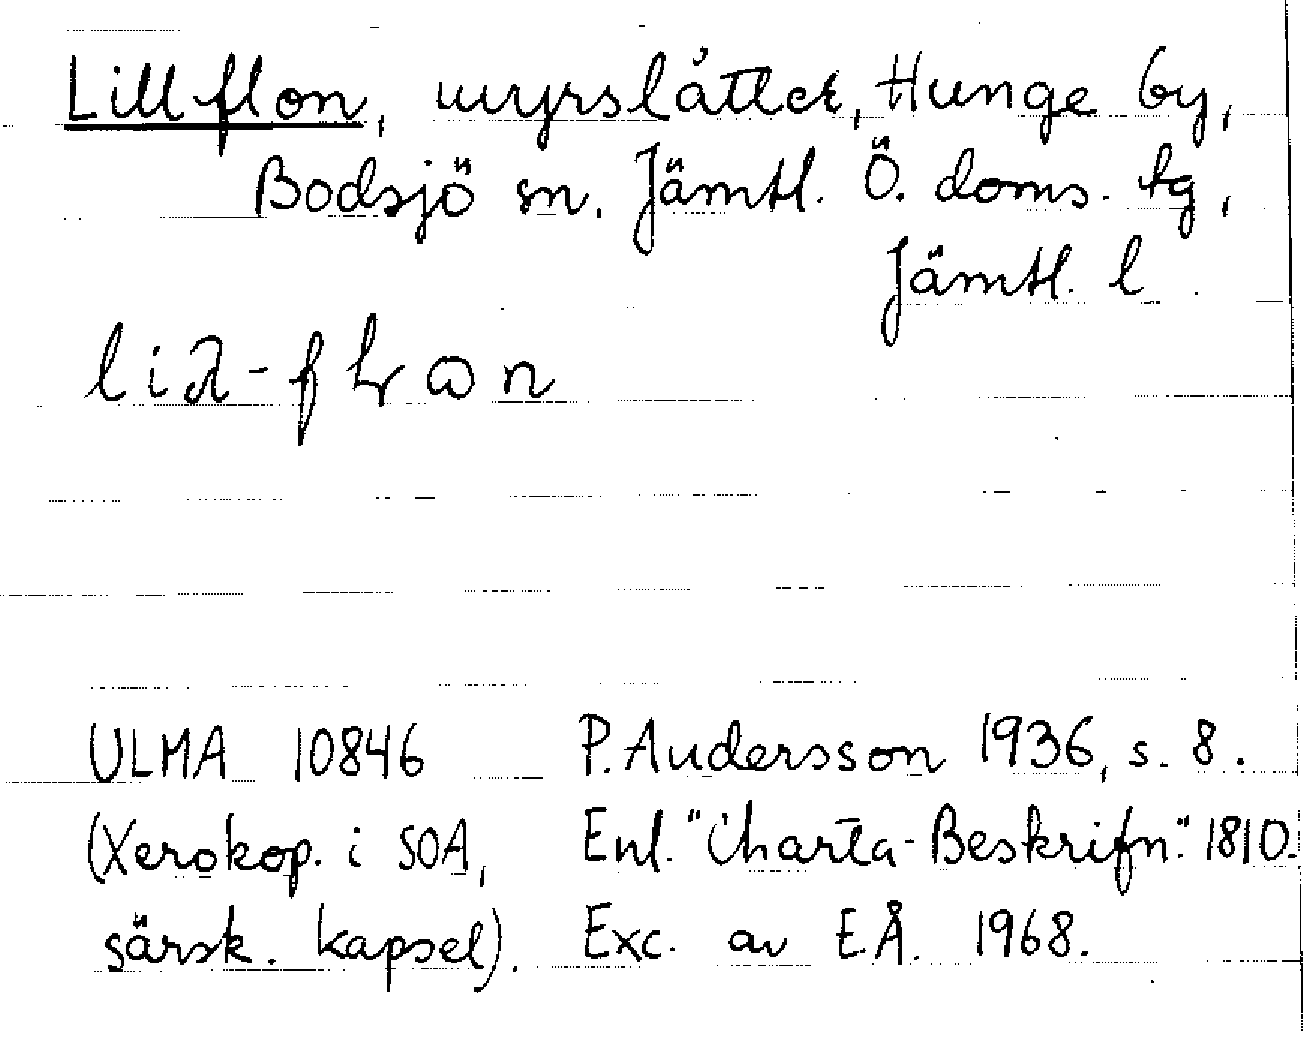 Lillflon, myrslåtter, Hunge by,
Bodsjö sn. Jämtl. Ö. doms. tg,
Jämtl. l.
ULMA 10846 P. Andersson 1936, s. 8.
(Xerokop. i SOA, Enl. "Charta-Beskrifn." 1810.
särsk. kapsel). Exc. av E.Å. 1968.